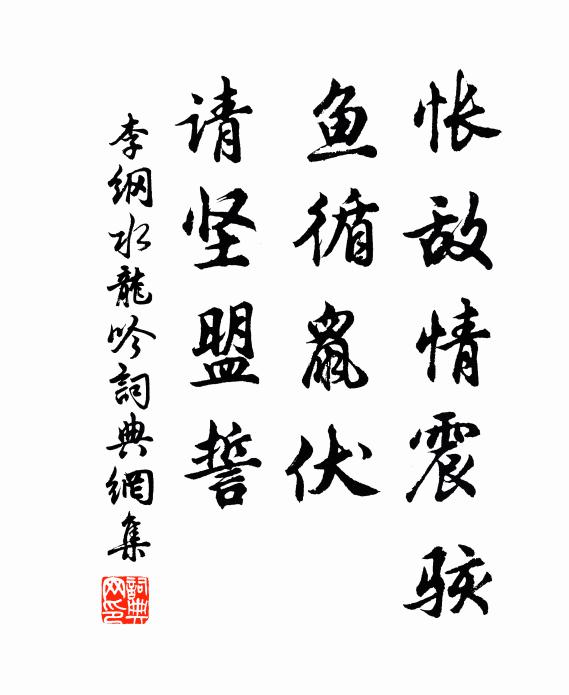 怅敌情震骇
鱼循鼠伏
请坚盟誓
李纲水龍吟詞典網集
詞典网印